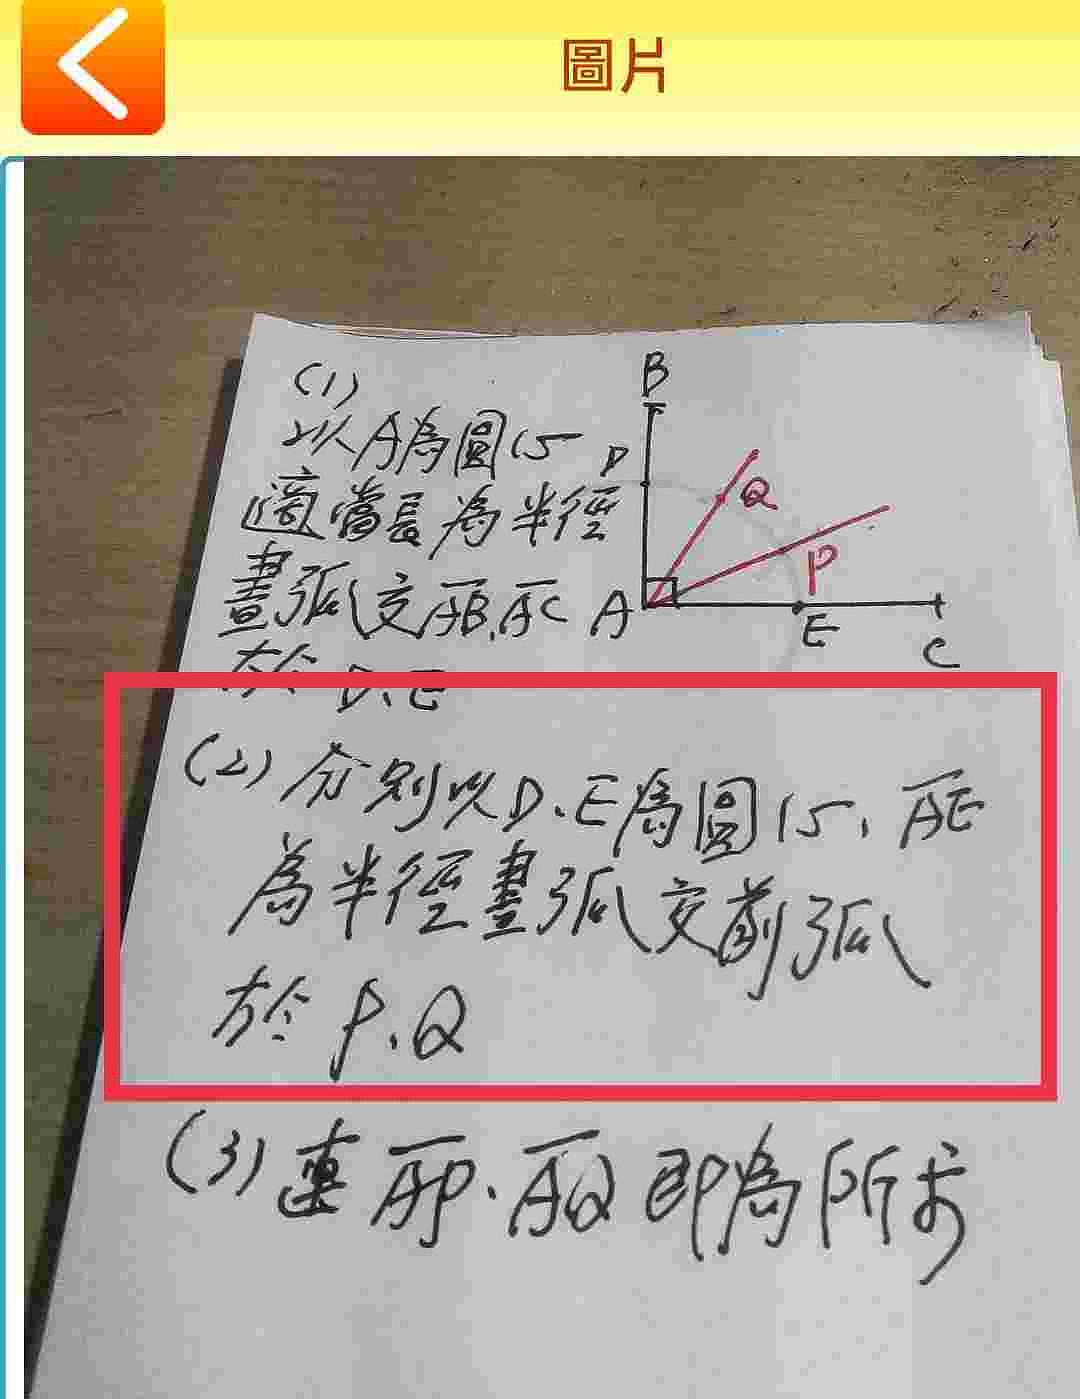 圖片
(1)
以A為圓心
適當長為半徑
畫弧交AB、AC
於D、E
B
D
Q
P
A
E
C
(2)分別以D、E為圓心、AE
為半徑畫弧交前弧
於P、Q
(3)連AP、AQ即為所求